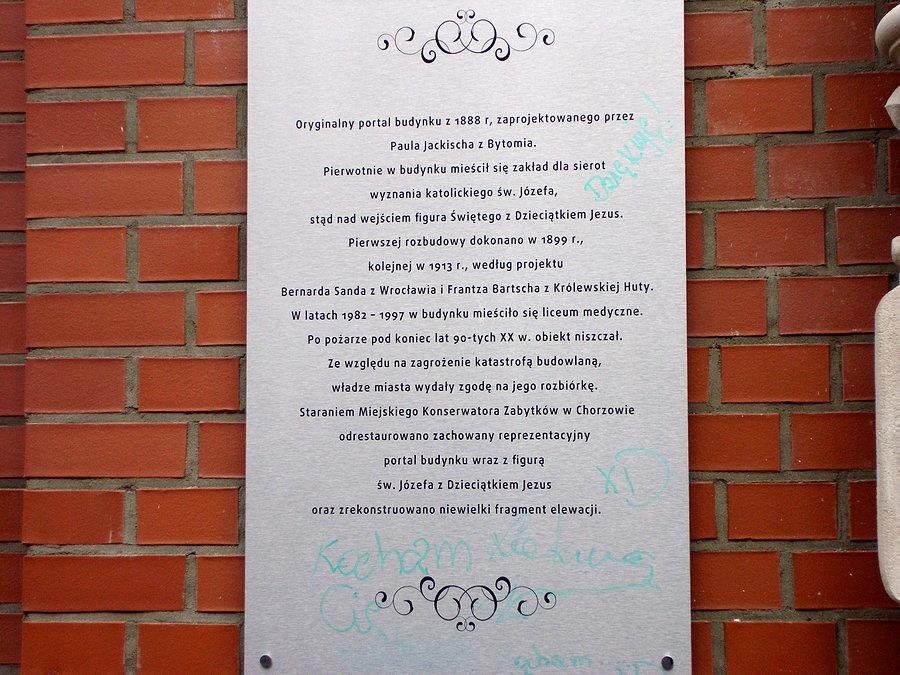 Oryginalny portal budynku z 1888 r, zaprojektowanego przez
Paula Jackischa z Bytomia.
Pierwotnie w budynku mieścił się zakład dla sierot
wyznania katolickiego św. Józefa,
stąd nad wejściem figura Świętego z Dzieciątkiem Jezus.
Pierwszej rozbudowy dokonano w 1899 r.,
kolejnej w 1913 r., według projektu
Bernarda Sanda z Wrocławia i Frantza Bartscha z Królewskiej Huty.
W latach 1982 – 1997 w budynku mieściło się liceum medyczne.
Po pożarze pod koniec lat 90-tych XX w. obiekt niszczał.
Ze względu na zagrożenie katastrofą budowlaną,
władze miasta wydały zgodę na jego rozbiórkę.
Staraniem Miejskiego Konserwatora Zabytków w Chorzowie
odrestaurowano zachowany reprezentacyjny
portal budynku wraz z figurą
św. Józefa z Dzieciątkiem Jezus
oraz zrekonstruowano niewielki fragment elewacji.
Dziękuję!
XD
Kocham